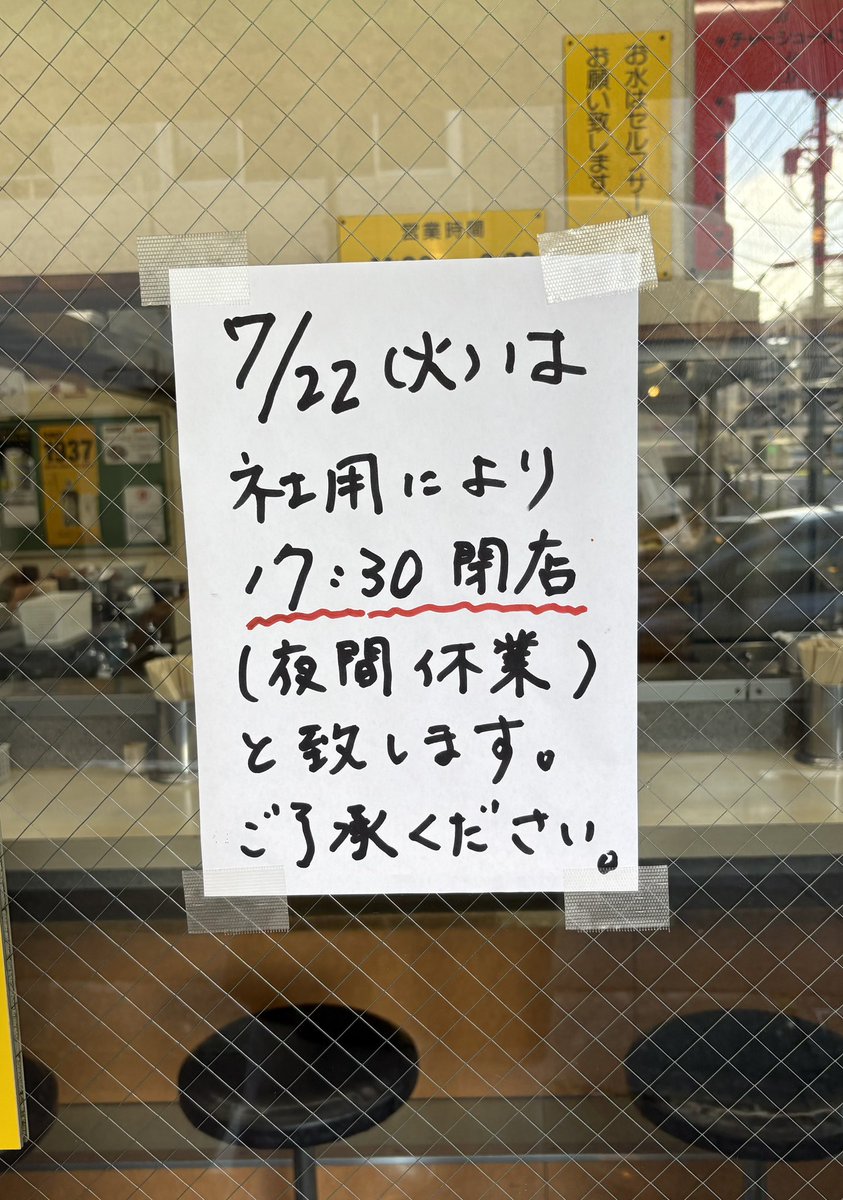 お水はセルフサー
お願い致します
営業時間
7/22(火)は
社用により
17:30 閉店
(夜間休業)
と致します。
ご了承ください。